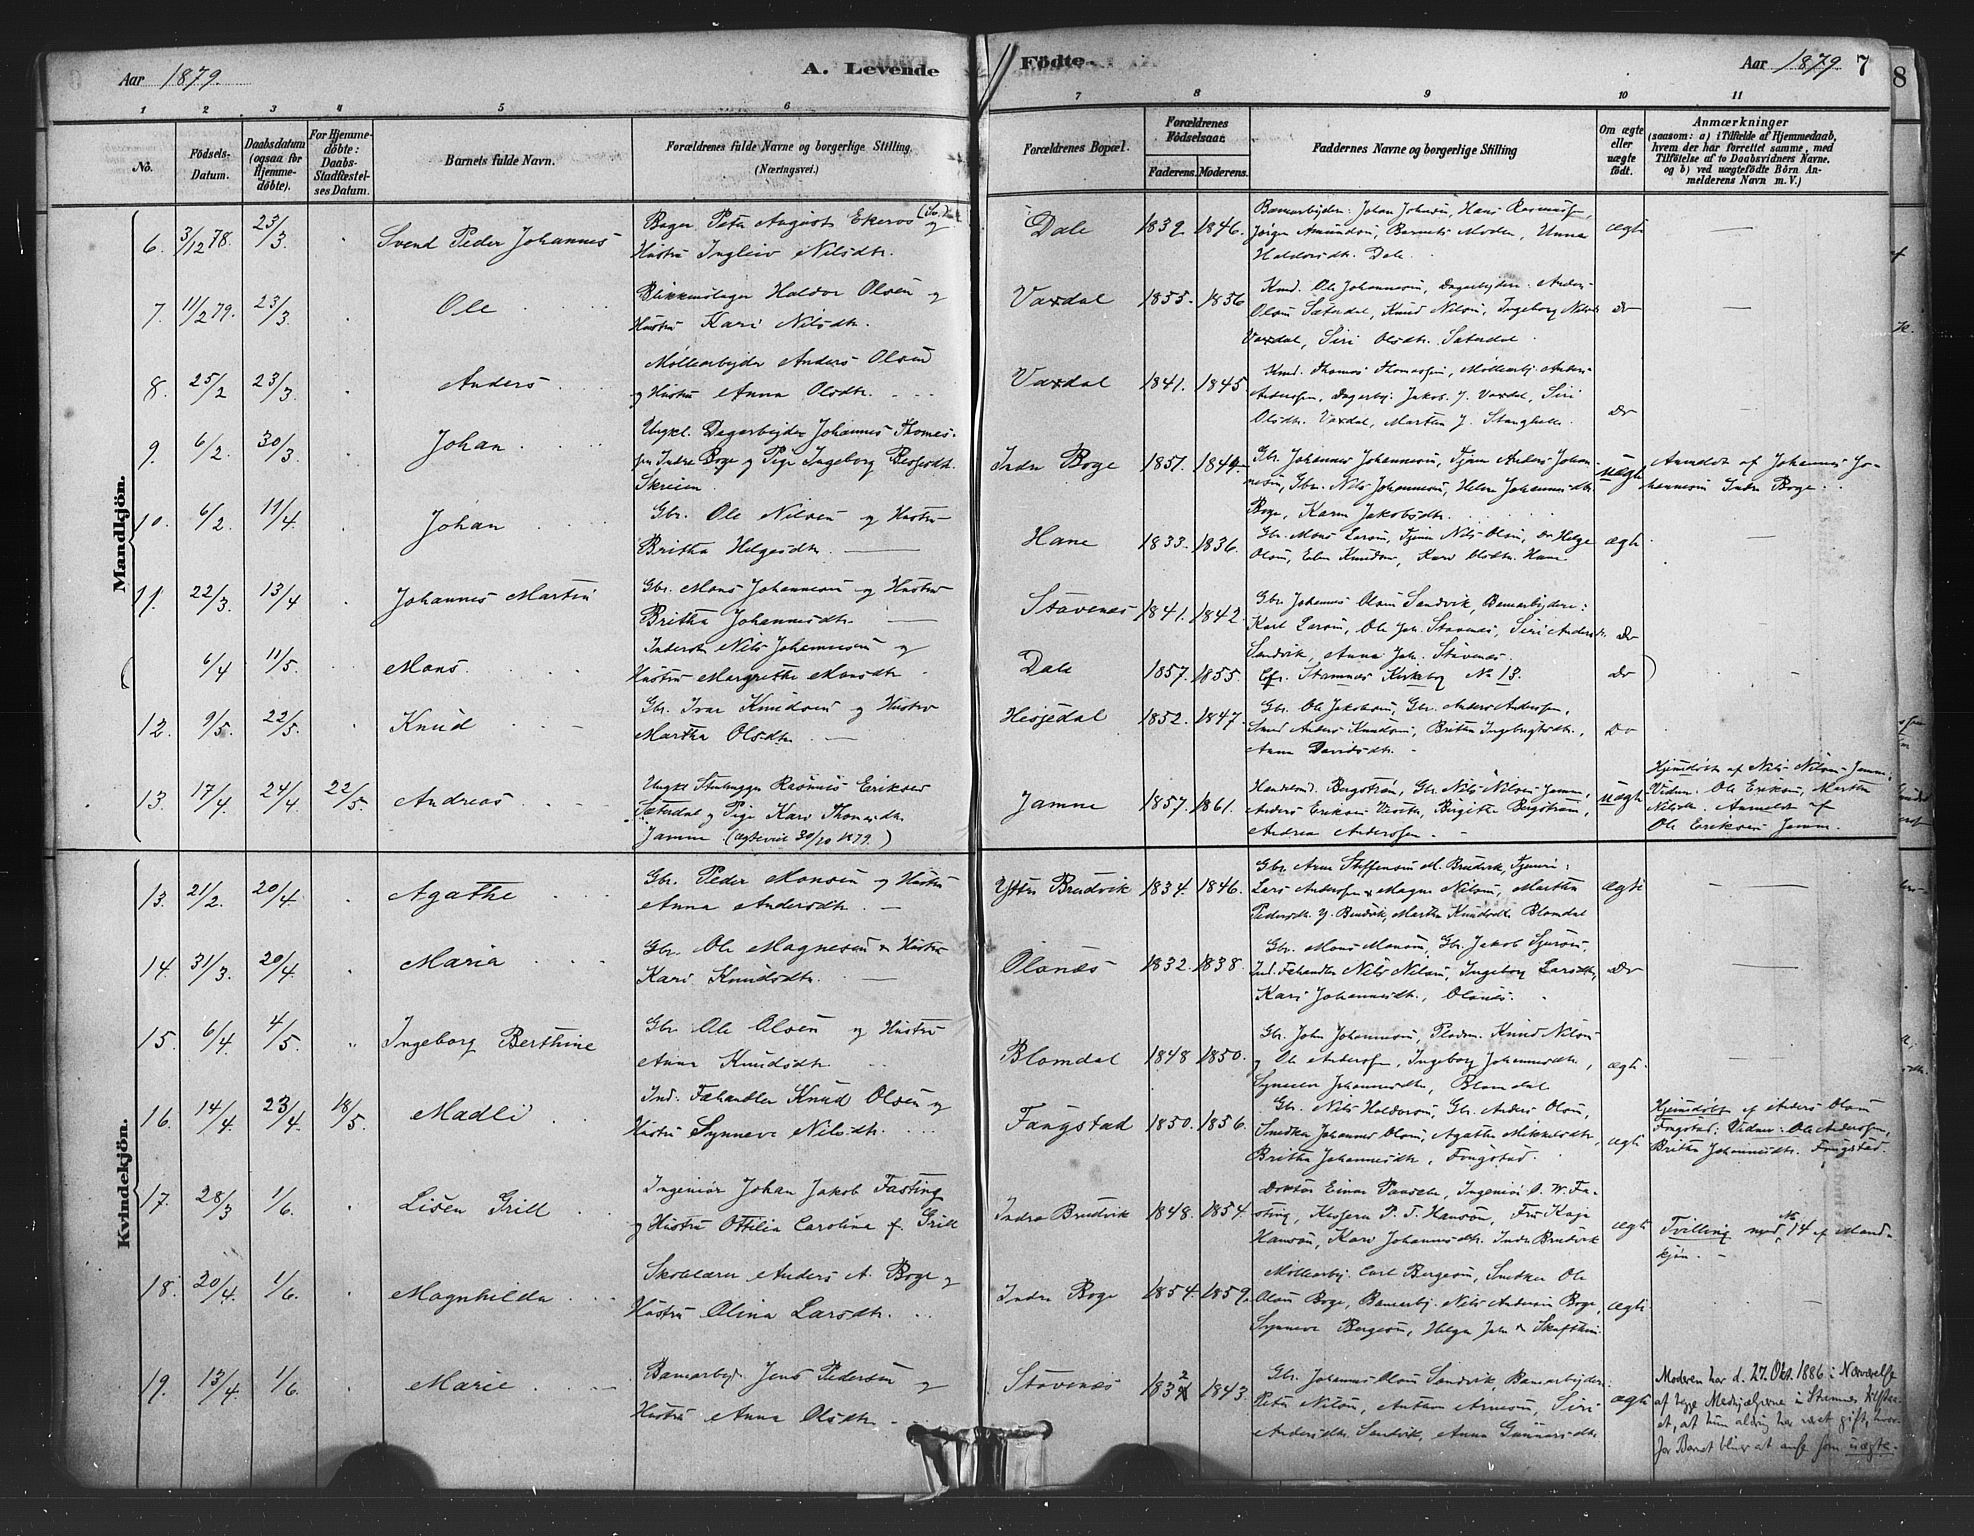 Aar 1879.
A. Levende
Födte.
Aar 1879
7
8
1 2 3 4 5 6 7 8 9 10 11
No.
Födsels-Datum.
Daabsdatum (ogsaa for Hjemmedöbte).
For Hjemmedöbte: Daabs-Stadfæstelses Datum.
Barnets fulde Navn.
Forældrenes fulde Navne og borgerlige Stilling. (Næringsvei.)
Forældrenes Bopæl.
Forældrenes Födselsaar.
Faderens. Moderens.
Faddernes Navne og borgerlige Stilling
Om ægte eller uægte födt.
Anmærkninger
(saasom: a) i Tilfælde af Hjemmedaab, hvem der har forrettet samme, med Tilföielse af to Daabsvidners Navne. og b) ved uægtefödte Börn Anmelderens Navn m. V.)
Mandkjön.
6. 3/12 78. 23/3. Svend Peder Johannes
Bager Peter August Ekeros og
Hustru Ingleiv Nilsdtr.
Dale 1839. 1846.
Barnarbeider: Johan Johnsen, Hans Rasmussen,
Jørgen Amundsen, Barnets Moder, Unna
Haldorsdtr. Dale.
ægte
7. 11/2 79. 23/3. Ole
Blikkenslager Haldor Olsen og
Hustru Kari Nilsdtr.
Vaxdal 1855. 1856
Knud Ole Johannesen, Dagarbejdere: Anders
Olsen Sæterdal, Knud Nilsen, Ingeborg Nilsd
Vaxdal, Siri Olsdtr. Sæterdal.
do
8. 25/2 23/3. Anders
Møllearbejder Anders Olsen
og Hustru Anna Olsdtr.
Vaxdal 1841. 1845.
Thomas Thomassen, Møllearb. Anders
Andersen, Dagarbj. Jakob J. Vaxdal, Siri
Olsdtr. Vaxdal, Marthen J. Stanghelle.
do
9. 6/2. 30/3. Johan
Ungkl. Dagarbejder Johannes Thomes-
sen Indre Boge og Pige Ingeborg
Skreien
Indre Boge 1851. 1849
Gbr. Johannes Johannesen, Tjener Anders Johan
nesen, Gbr. Nils Johannesen, Helene Johannesdtr.
Boge, Karen Jakobsdtr.
uægte
Anmeldt af Johannes Jo-
hannesen Indre Boge.
10. 6/2 11/4. Johan
Gbr. Ole Nilsen og Hustru
Britha Helgesdtr.
Hane 1833. 1836.
Gbr. Mons Larsen, Tjener Nils Olsen, do Helge
Olsen, Knudsen, Kari Olsdtr. Hane
ægte
11. 22/3. 13/4 Johannes Martin
Gbr. Mons Johannesen og Hustru
Britha Johannesdtr.
Stavenes 1841. 1842.
Gbr. Johannes Olsen Sandvik, Barnarbejdere:
Karl Larsen, Ole Joh. Stavenes, Siri Andersdr.
Sandvik, Anna Joh. Stavenes.
do
6/4 11/5. Mons
Inderst Nils Johannesen og
Hustru Margrethe Monsdtr.
Dale 1857. 1855.
Cfr. Stamnæs Kirkebog No 13.
do
12. 9/5. 22/5. Knud
Gbr. Ivar Knudsen og Hustru
Martha Olsdtr.
Hesjedal 1852. 1847.
Gbr. Ole Jakobsen, Gbr. Anders Andersen,
Smed Anders Knudsen, Britha Ingebrigtsdtr.,
Anna Davidsdtr.
do
13. 17/4 24/4. 22/5. Andreas
Ungkl. Stenhugger Rasmus Eriksen
Sæterdal og Pige Kari Thomasdtr.
Jamne (ægteviet 30/10 1879.)
Jamne 1857. 1861.
Handelsmd. Bergstrøm, Gbr. Nils Nilsen Jamne,
Anders Eriksen, Birgithe Bergstrøm,
Andrea Andersen.
uægte
Hjemdøbt af Nils Nilsen Jamne,
Vidner: Ole Eriksen, Marthe
Nilsdtr. Anmeldt af
Ole Eriksen Jamne.
Kvindekjön.
13. 21/2. 20/4. Agathe
Gbr. Peder Monsen og Hustru
Anna Andersdtr.
Ytre Brudvik 1834. 1846.
Gbr. Arne Steffensen M. Brudvik, Tjener:
Lars Andersen, Magne Nilsen, Marthe
Pedersdtr. Y. Brudvik, Marthe Knudsdtr. Blomdal
ægte
14. 31/3. 20/4. Maria
Gbr. Ole Magnesen og Hustru
Kari Knudsdtr.
Olsnæs 1832. 1838.
Gbr. Mons Monsen, Gbr. Jakob Sjursen,
Ind. Fæhandler Nils Nilsen, Ingeborg Larsdtr,
Kari Johannesdtr., Olsnæs.
do
15. 6/4 4/5. Ingeborg Berthine
Gbr. Ole Olsen og Hustru
Anna Knudsdtr.
Blomdal 1848 1850.
Gbr. John Johannesen, Knud Nilsen
og Ole Andersen, Ingeborg Johannesdtr.,
Synneva Johannesdtr., Blomdal
ægte.
16. 14/4. 23/4 18/5. Madli
Ind. Fæhandler Knud Olsen og
Hustru Synneve Nilsdtr.
Fangstad 1850. 1856.
Gbr. Nils Haldorsen, Gbr. Anders Olsen,
Snedker Johannes Olsen, Agathe Mikkelsdtr.,
Britha Johannesdtr., Fangstad.
ægte
Hjemdøbt af Anders Olsen
Fangstad. Vidner: Ole Andersen,
Britha Johannesdtr. Fangstad.
17. 28/3 1/6. Lisen Grill
Ingeniør Johan Jakob Fasting
og Hustru Ottilia Carolina f. Grill
Indre Brudvik 1848. 1854.
Doktor Einar Pansch, Ingeniør O. W. Fa-
sting, Kasserer P. T. Hansen, Fru Kaja
Hansen, Kari Johannesdtr. Indre Brudvik
ægte
Tvilling med No 14 af Mand-
kjøn.
18. 20/4. 1/6. Magnhilda
Skolelærer Anders A. Boge og
Hustru Olina Larsdtr.
Indre Boge 1854. 1859.
Møllearbj. Carl Bergesen, Snedker Ole
Olsen Boge, Barnarbj. Nils Andersen Boge,
Synneve Bergesen, Helga Joh.
ægte
19. 13/4. 1/6. Marie
Barnarbejd. Jens Pedersen og
Hustru Anna Olsdtr.
Stavenæs 1832 1843.
Gbr. Johannes Olsen Sandvik, Barnarbejdere:
Peter Nilsen, Anthon Arnesen, Siri
Andersdtr. Sandvik, Anna Gunnarsdtr.
ægte
Moderen har d. 27. Okt. 1886 i Nærværelse
af begge Medhjælperne i Stamnes tilstaa-
et, at hun aldrig har været gift, hvor-
for Barnet bliver at anse som uægte.